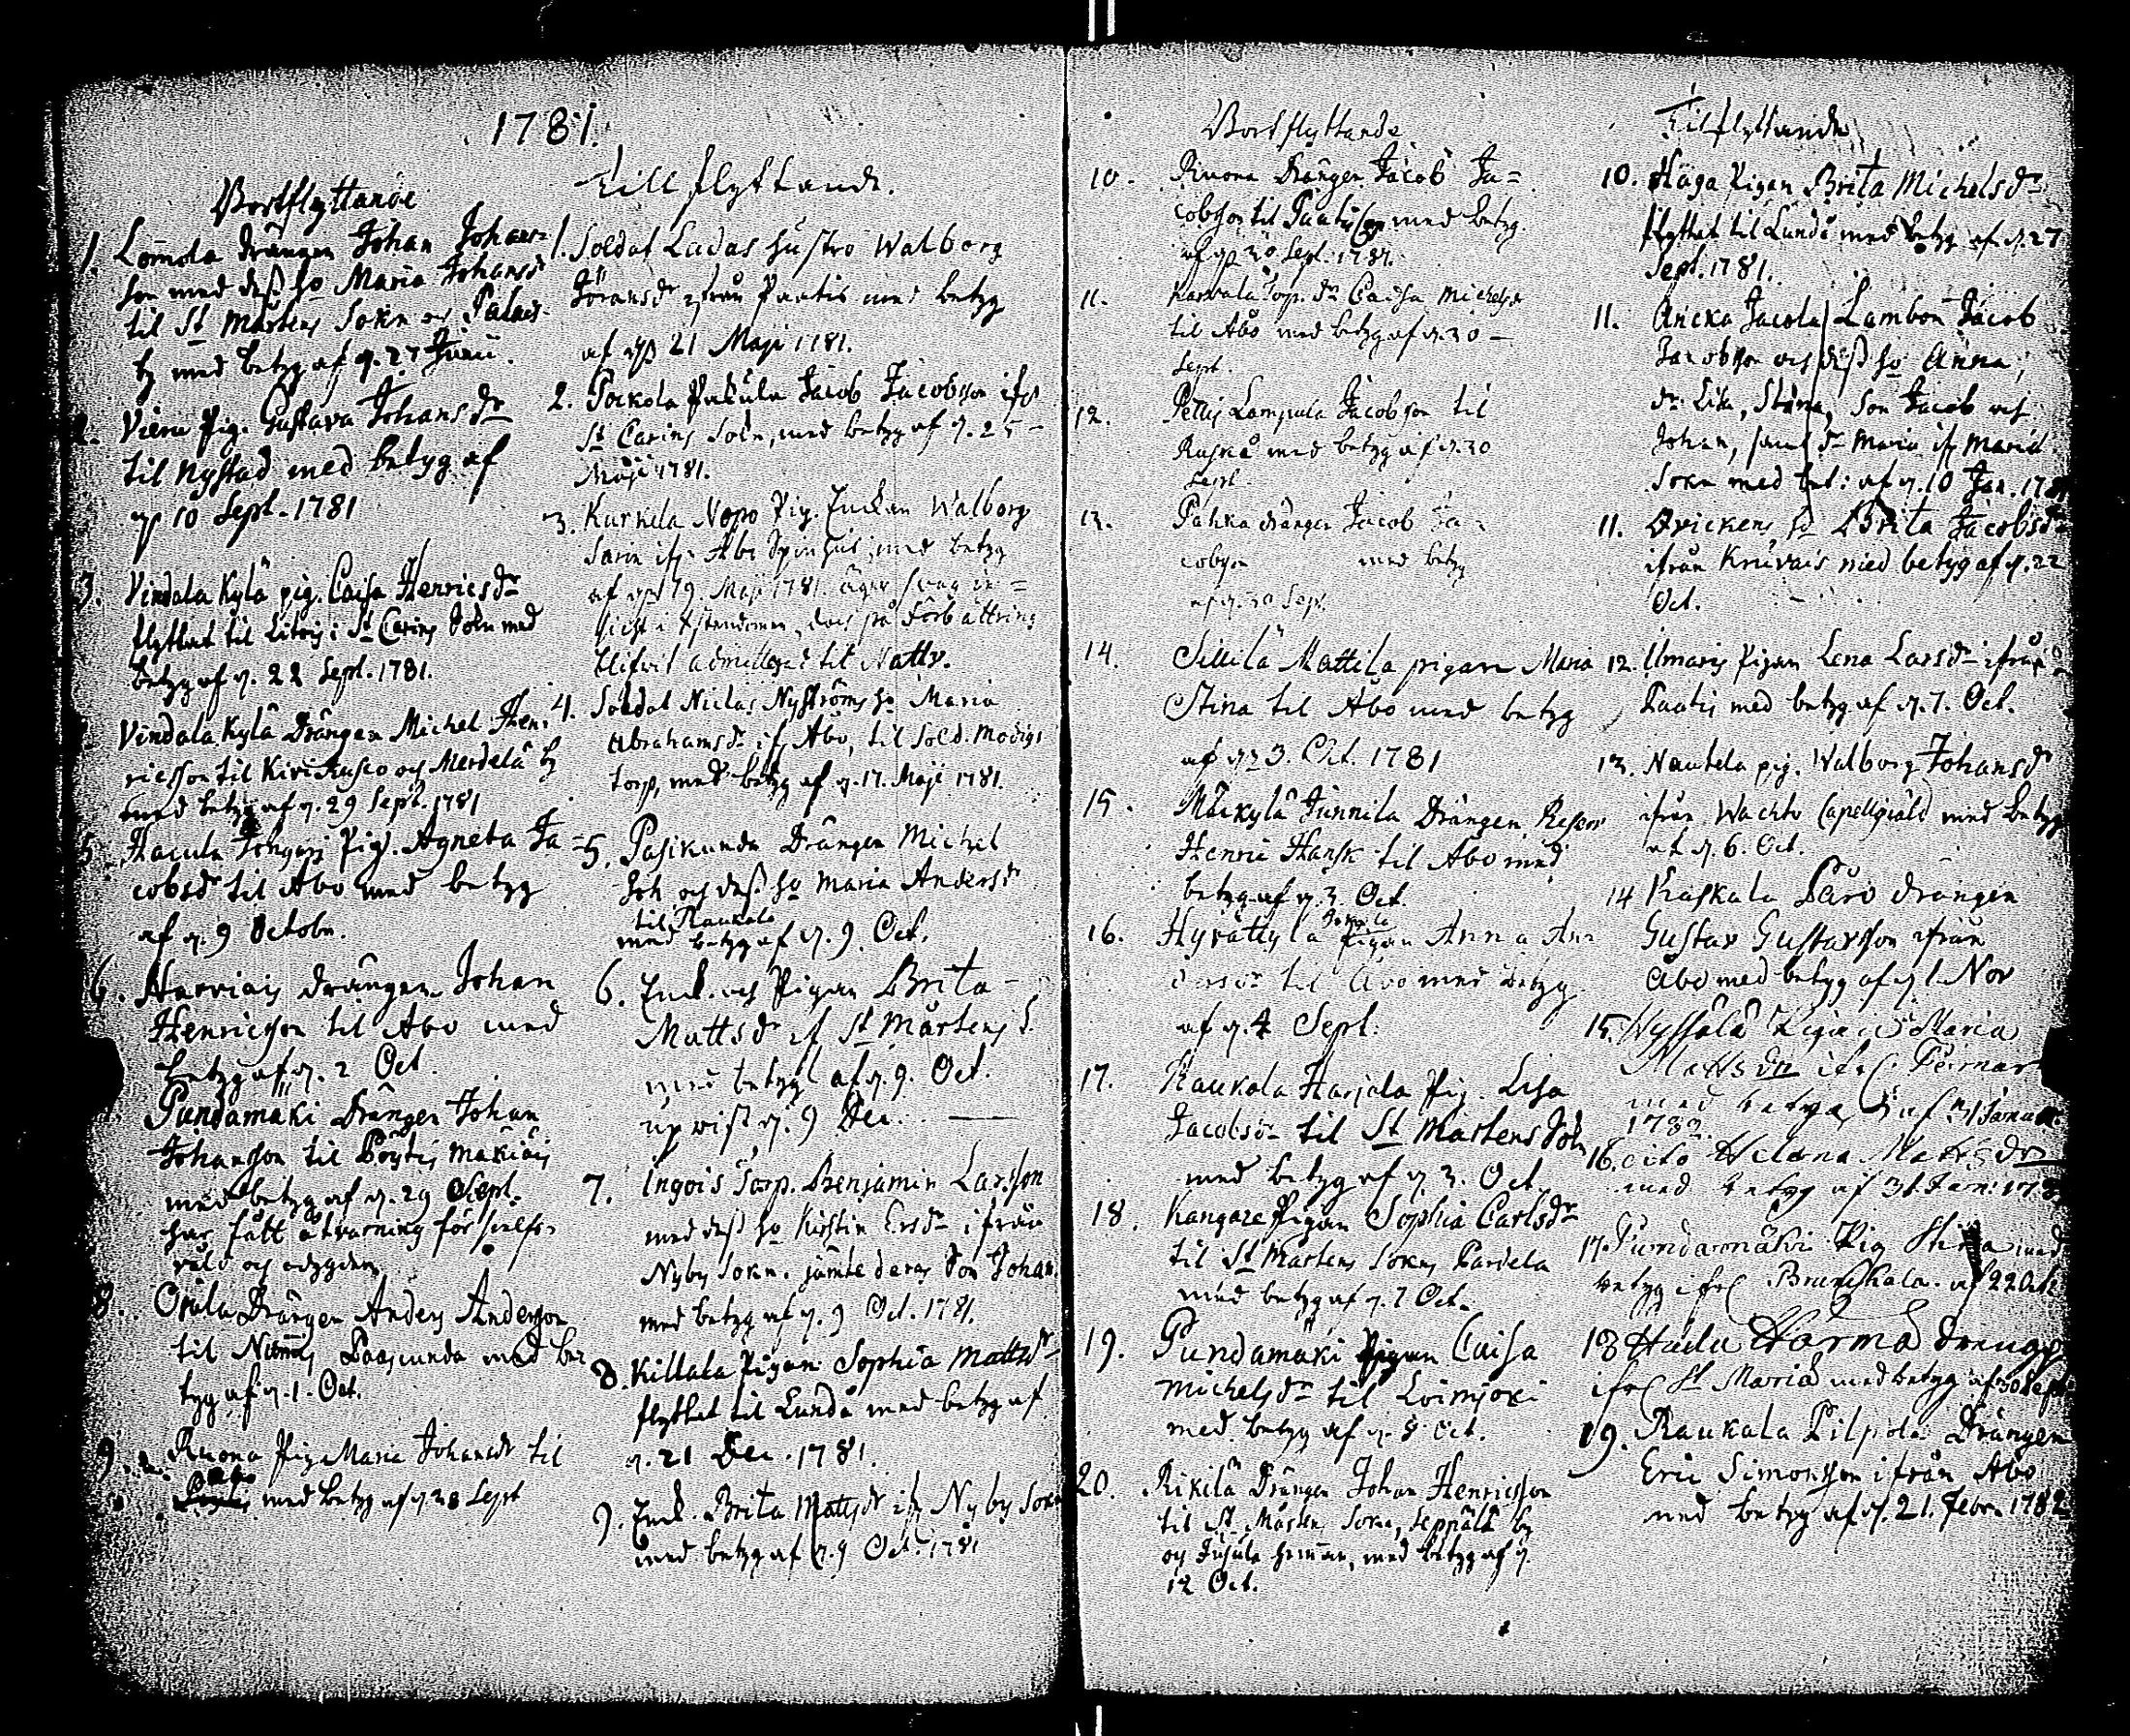 1781.
Bortflyttande
1. Lomola Drängen Johan Johans=
son med dess ho Maria Johansdr
til St Mårtens Sokn och Palais
by med betyg af d. 27 Junii.
2. Vieru Pig. Gustava Johansdr
til Nystad med betyg af
d. 10 Sept. 1781
3. Vindala Kylä pig. Caisa Henricsdr
flyttat til Litois i St Carins Sokn med
betyg af d. 22 Sept. 1781.
Vindala Kylä Drängen Michel Hen=
ricsson til Kirikusco och Merdelä by
med betyg af d. 29 Sept. 1781
5. Pig. Agneta Ja=
cobsdr til Åbo med betyg
af d. 9 Octobr.
6. Harviais Drängen Johan
Henricsson til Åbo med
betyg af d. 2 Oct.
Pundamäki Drängen Johan
Johansson til Pöytis Mäkiäis
med betyg af d. 29 Sept.
har fått åtvarning för
och
8. Drängen Anders Andersson
til Nummis Paascunda med be
tyg af d. 1. Oct.
9. Ruona Pig. Maria Johansdr til
Åbo med betyg af d. 28 Sept
Till flyttande.
1. Soldat Ludas hustro Walborg
Göransdr ifrån Paatis med betyg
af d. 21 Maji 1781.
2. Pockola Jacob Jacobsson ifr
St Carins Sokn, med betyg af d. 25
Maji 1781.
3. Kurkela Nopo Pig. Enkan Walborg
ifr. Åbo Spinhus, med betyg
af d. 19. Maji 1781. äger svag in=
sicht i Xstendomen, dock på Förbättring
blifvit admitterad til Nattv.
4. Soldat Niclas Nyströms ho Maria
Abrahamsdr ifr Åbo, til Sold. Modigs
torp, med betyg af d. 17. Maji 1781.
5. Pasikunda Drängen Michel
Joh och dess ho Maria Andersdr
til Raukala
med betyg af d. 9. Oct.
6. Enk. och Pigan Brita
Mattsdr if St Mårtens S.
med betyg af d. 9. Oct.
upvist d. 9 Dec.
7. Ingois Torp. Benjamin Larsson
med dess ho Kirstin Ersdr ifrån
Nyby Sokn. jämte deras Son Johan.
med betyg af d. 9 Oct. 1781.
8. Killala Pigan Sophia Mattsdr
flyttat til Lundo med betyg af
d. 21 Dec. 1781.
9. Enk. Brita Mattsdr ifr Nyby Sokn
med betyg af d. 9 Oct. 1781
Bortflyttande
10. Ruona Drängen Jacob Ja=
cobsson til Paatis med betyg
af d. 30 Sept. 1781.
11. Karvala Torp. dr Caisa Michelsdr
til Åbo med betyg af d. 30
Sept.
12. Pettis Lampula Jacobsson til
Rusko med betyg af d. 30
Sept.
13. Pahka drängen Jacob Ja=
cobsson med betyg
af d. 30 Sept.
14. Sillilä Mattila pigan Maria
Stina til Åbo med betyg
af d. 3. Oct. 1781
15. Mäkylä Junnila Drängen
Henric Hansk til Åbo med
betyg af d. 3 Oct.
16. Hyvättylä Pigan Anna An=
dersdr til Åbo med betyg
af d. 4 Sept.
17. Raukola Harjola Pig. Lisa
Jacobsdr til St Mårtens Sokn
med betyg af d 3. Oct.
18. Kangare Pigan Sophia Carlsdr
til St Mårtens Sokns Pardela
med betyg af d. 7 Oct.
19. Pundamäki Pigan Caisa
Michelsdr til Loimjoki
med betyg af d. 8 Oct.
20. Rikilä Drängen Johan Henricsson
til St Mårtens Sokn, Seppälä by
och Jusula hemman, med betyg af d.
12 Oct.
Tilflyttande
10. Haga Pigan Brita Michelsdr
flyttat til Lundo med betyg af d. 27
Sept. 1781.
11. Ancka Jacola Lambon Jacob
Jacobsson och dess ho Anna,
dr. Lisa, Stina, Son Jacob och
Johan, samt dr Maria ifr Mariæ
Sokn med bet: af d. 10 Jan. 1781
11. ho Brita Jacobsdr
ifrån Knuvais med betyg af d. 22
Oct.
12. Ilmaris Pigan Lena Larsdr ifrån
Paatis med betyg af d. 7. Oct.
13. Nautela pig. Walborg Johansdr
ifrån Wachto Capellgiäld med betyg
af d. 6. Oct.
14 Kaskala Päro drängen
Gustav Gustavsson ifrån
Åbo med betyg af d. 1 Nov
15. Nyssälä Pigan Maria
Mattsdr ifrå Pemar
med betyg af d. 21 Januar:
1782
16. dito Helena Mattsdr
med betyg af 31 Jan: 1782
17. Pundamäki Pig Stina med
betyg ifrå Brunkala. af 22 Oct.
18 Härma dreng
ifrå St Mariæ med betyg af 30 Sept
19. Raukala Pilpola Drängen
Eric Simonsson ifrån Åbo
med betyg af d. 21. Febr. 1782